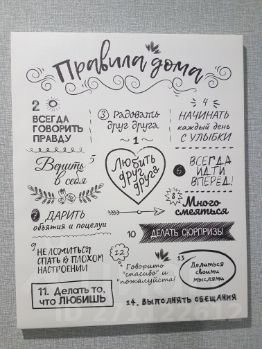 Правила дома
2
ВСЕГДА
ГОВОРИТЬ
ПРАВДУ
3 Радовать
друг друга
4
НАЧИНАТЬ
каждый день
С УЛЫБКИ
1
Любить
друг
друга
5
Верить
в себя
6 ВСЕГДА
ИДТИ
ВПЕРЕД!
7 ДАРИТЬ
объятия и поцелуи
8 Много
смеяться
9 НЕ ЛОЖИТЬСЯ
СПАТЬ В ПЛОХОМ
НАСТРОЕНИИ
10 ДЕЛАТЬ СЮРПРИЗЫ
11. Делать то,
что ЛЮБИШЬ
12
Говорить
"спасибо" и
"пожалуйста"
13
Делиться
своими
мыслями
14. ВЫПОЛНЯТЬ ОБЕЩАНИЯ